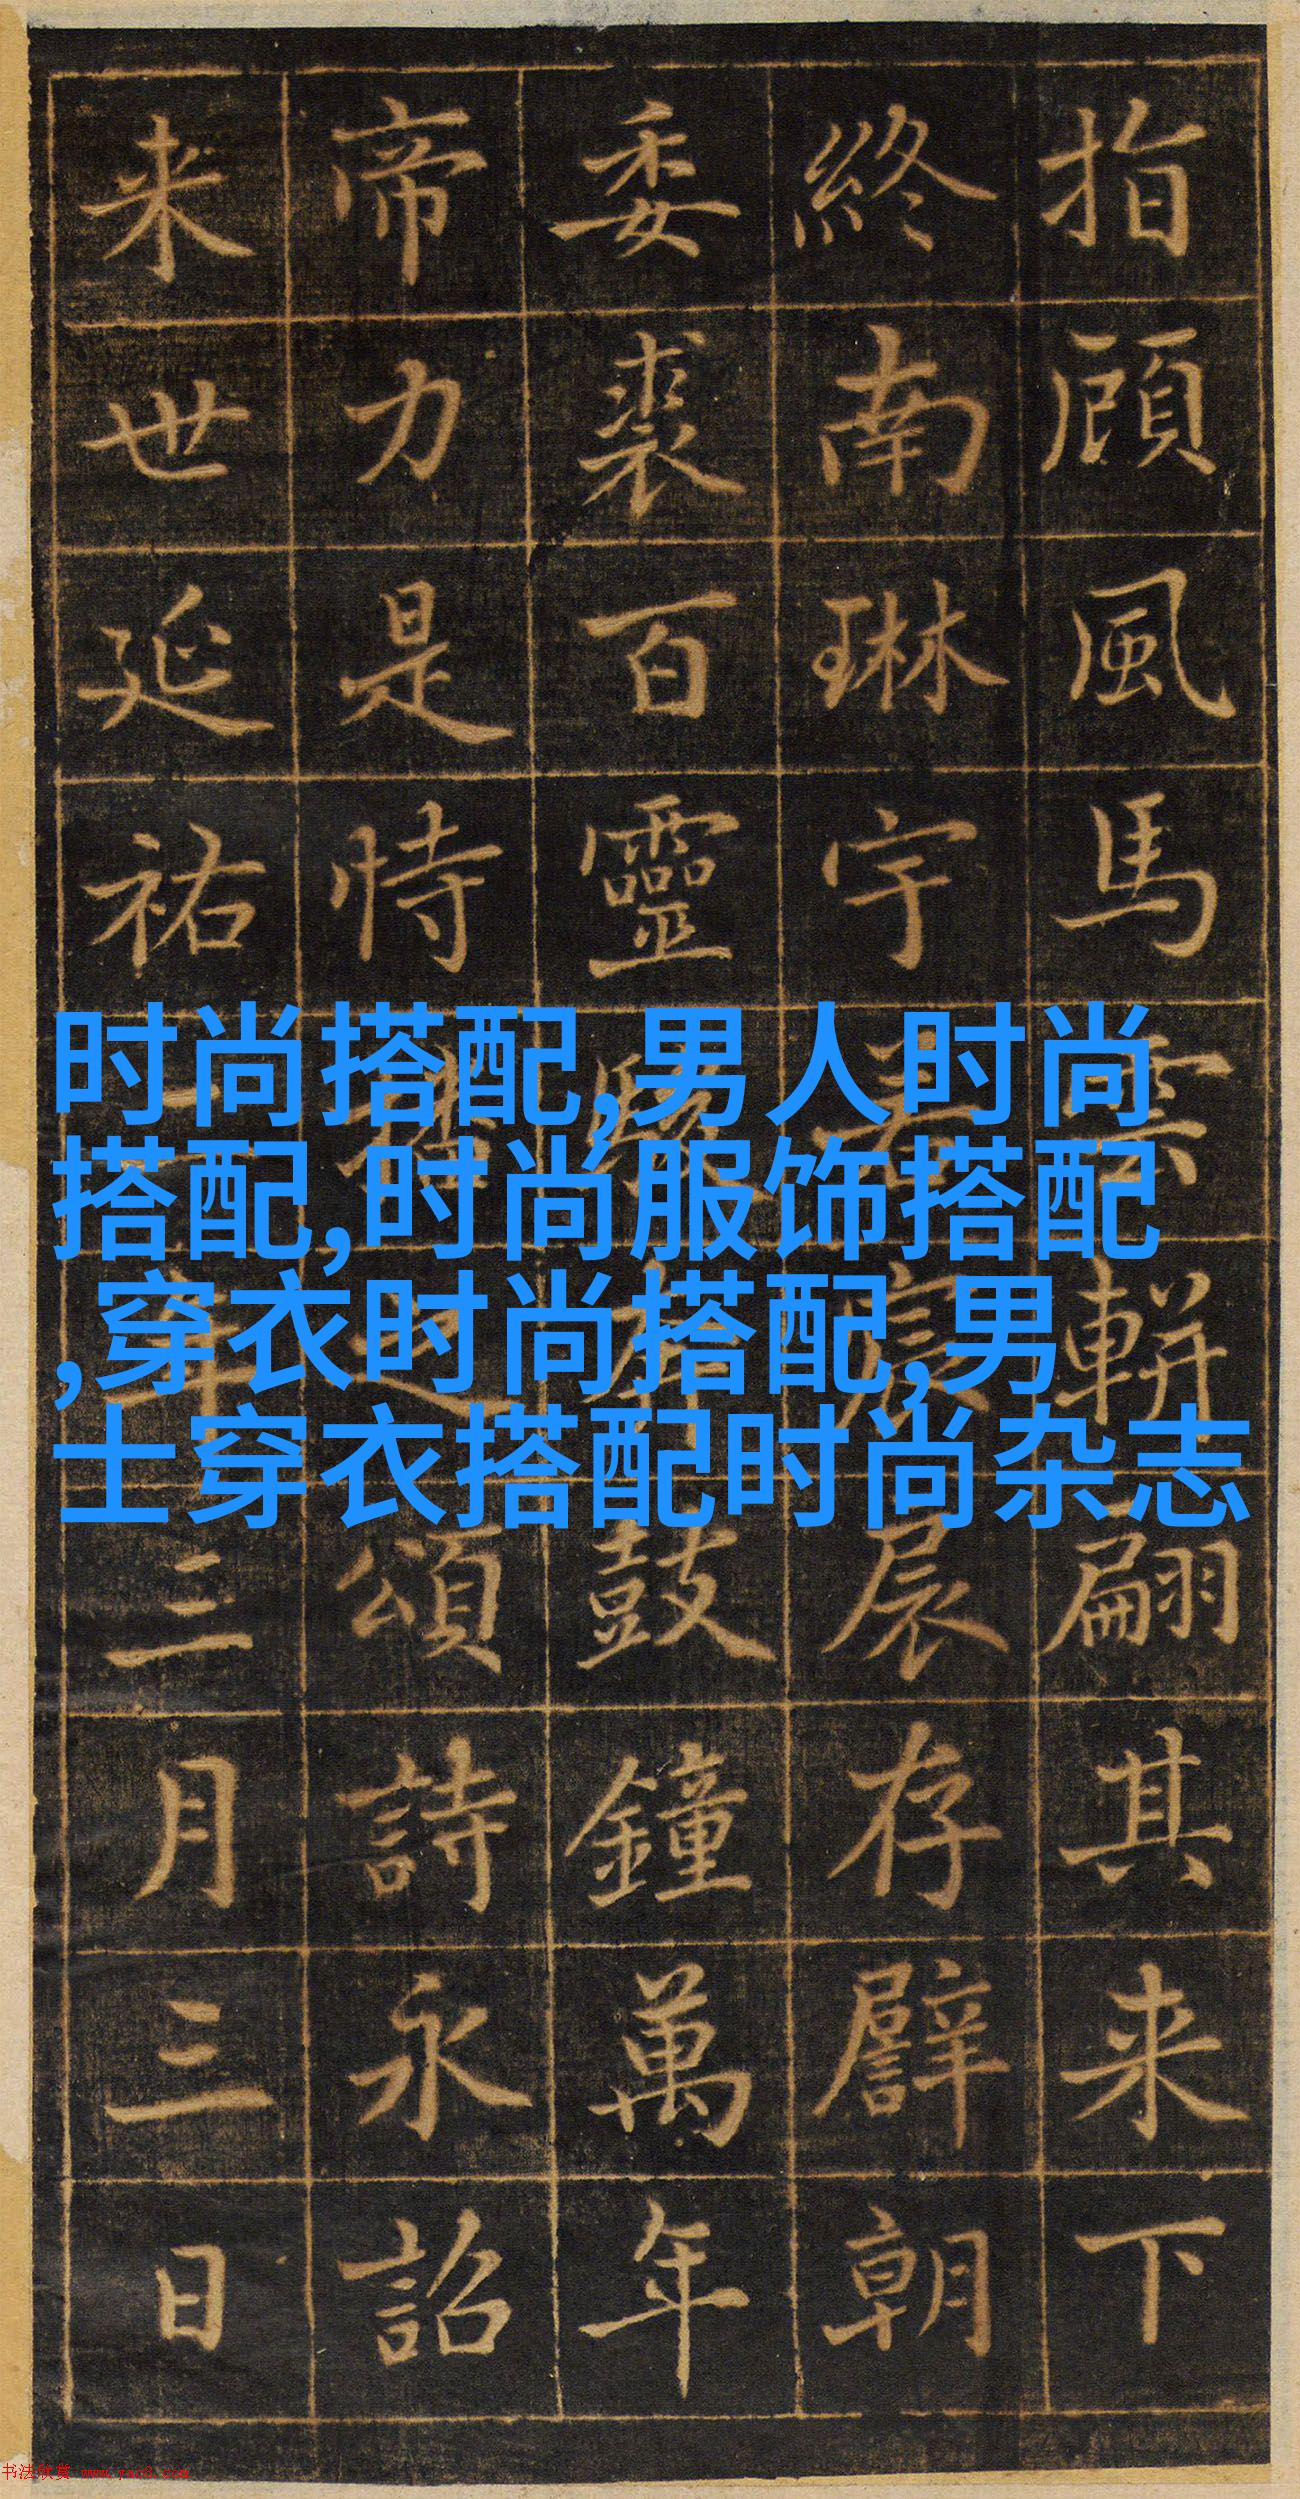 指顧風馬雲軿翩其来下
終南琳宇若存朝
委裘百靈鼓鐘萬年
帝力是恃播之頌詩永詔
来世延祐年三月三日
时尚搭配,男人时尚
搭配,时尚服饰搭配
,穿衣时尚搭配,男
士穿衣搭配时尚杂志
书法欣赏 www.yac8.com